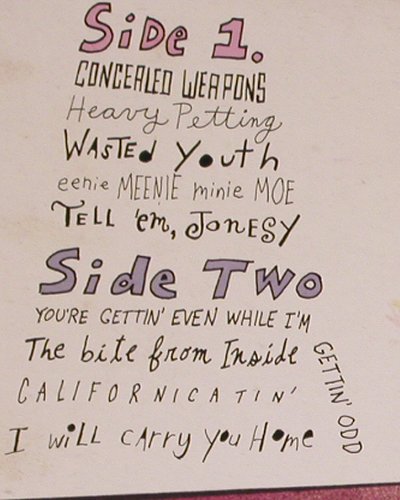 Side 1.
CONCEALED WEAPONS
Heavy Petting
WASTEd Youth
eenie MEENIE minie MOE
TELL 'em, JONESY
Side Two
YOU'RE GETTIN' EVEN WHILE I'M
GETTIN' ODD
The bite from Inside
CALIFORNICATIN'
I will CARRY You Home